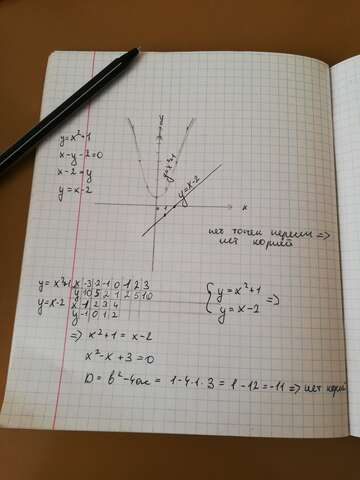 y = x²+1
x-y-2=0
x-2=y
y=x-2
y
y=x²+1
y=x-2
1
x
нет точек пересеч =>
нет корней
y=x²+1 x -3 -2 -1 0 1 2 3
y 10 5 2 1 2 5 10
y=x-2 x 1 2 3 4
y -1 0 1 2
{ y=x²+1
y=x-2 =>
=> x²+1 = x-2
x²-x+3=0
D = b²-4ac = 1-4·1·3 = 1-12=-11 => нет корн